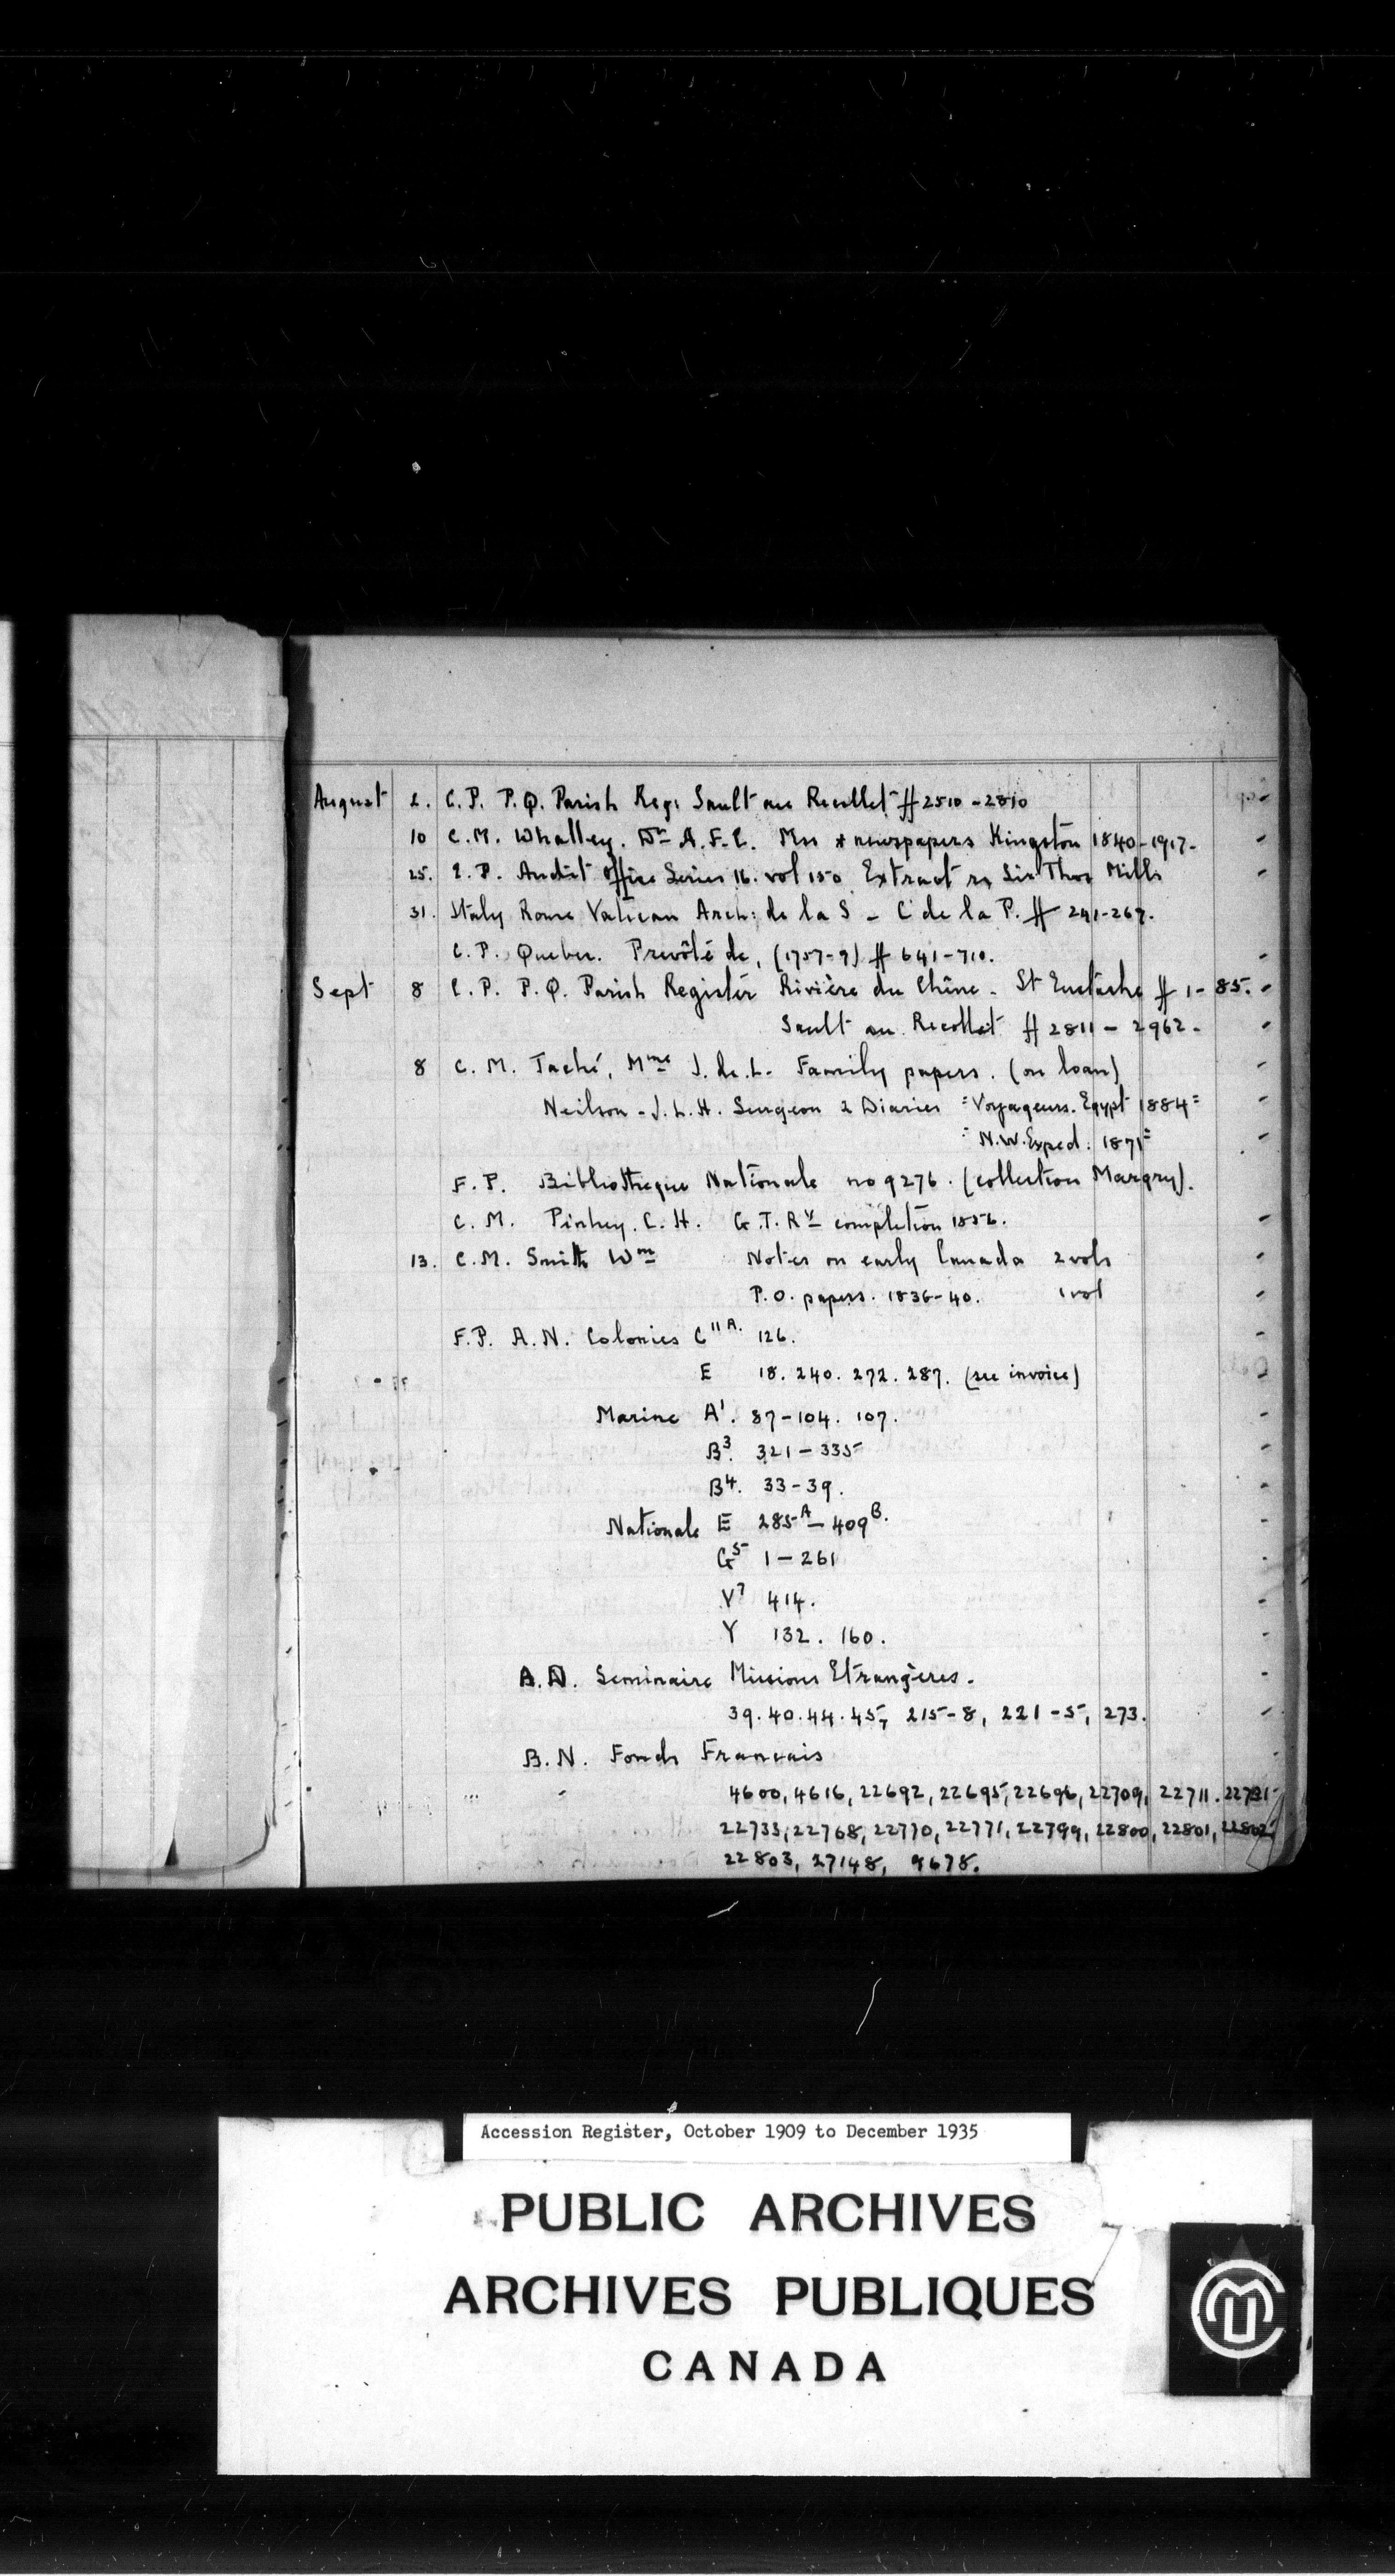 August 2. C.P. P.Q. Parish Regr Sault au Recollet ff 2510-2810
10 C.M. Whalley. Dr A.F.C. Mss + newspapers Kingston 1840-1917-
25. E.P. Audit Office Series 16. vol 150 Extract re Sir Thos Mills
31. Italy Rome Vatican Arch: de la S - C de la P. ff 241-267.
C.P. Quebec. Prevôté de, (1757-9) ff 641-710.
Sept 8 C.P. P.Q. Parish Register Rivière du Chêne - St Eustache ff 1-85.
Sault au Recollet ff 2811-2962-
8 C.M. Taché, Mme J. de L. Family papers. (on loan)
Neilson - J.L.H. Surgeon 2 Diaries "Voyageurs. Egypt 1884"
"N.W. Exped. 1871"
F.P. Bibliotheque Nationale no 9276. (collection Margry).
C.M. Pinhey. C.H. G.T.Ry completion 1856.
13. C.M. Smith Wm Notes on early Canada 2 vols
P.O. papers. 1836-40. 1 vol
F.P. A.N. Colonies C11A. 126.
E 18. 240. 272. 287. (see invoice)
Marine A1. 87-104. 107.
B3. 321-335
B4. 33-39.
Nationale E 285A-409B.
G5 1-261
V7 414.
Y 132. 160.
Seminaire Missions Etrangères.
39.40.44.45, 215-8, 221-5, 273.
B.N. Fonds Francais
4600, 4616, 22692, 22695, 22696, 22709, 22711.
22733, 22768, 22770, 22771, 22799, 22800, 22801, 22802,
22803, 27148, 9678.
Accession Register, October 1909 to December 1935
PUBLIC ARCHIVES
ARCHIVES PUBLIQUES
CANADA